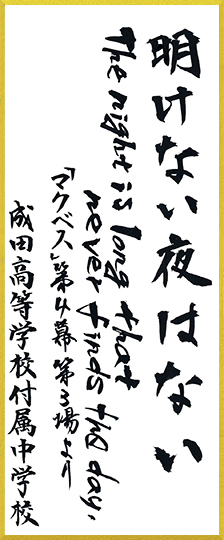 明けない夜はない
The night is long that
never finds the day.
「マクベス」第4幕第3場より
成田高等学校付属中学校